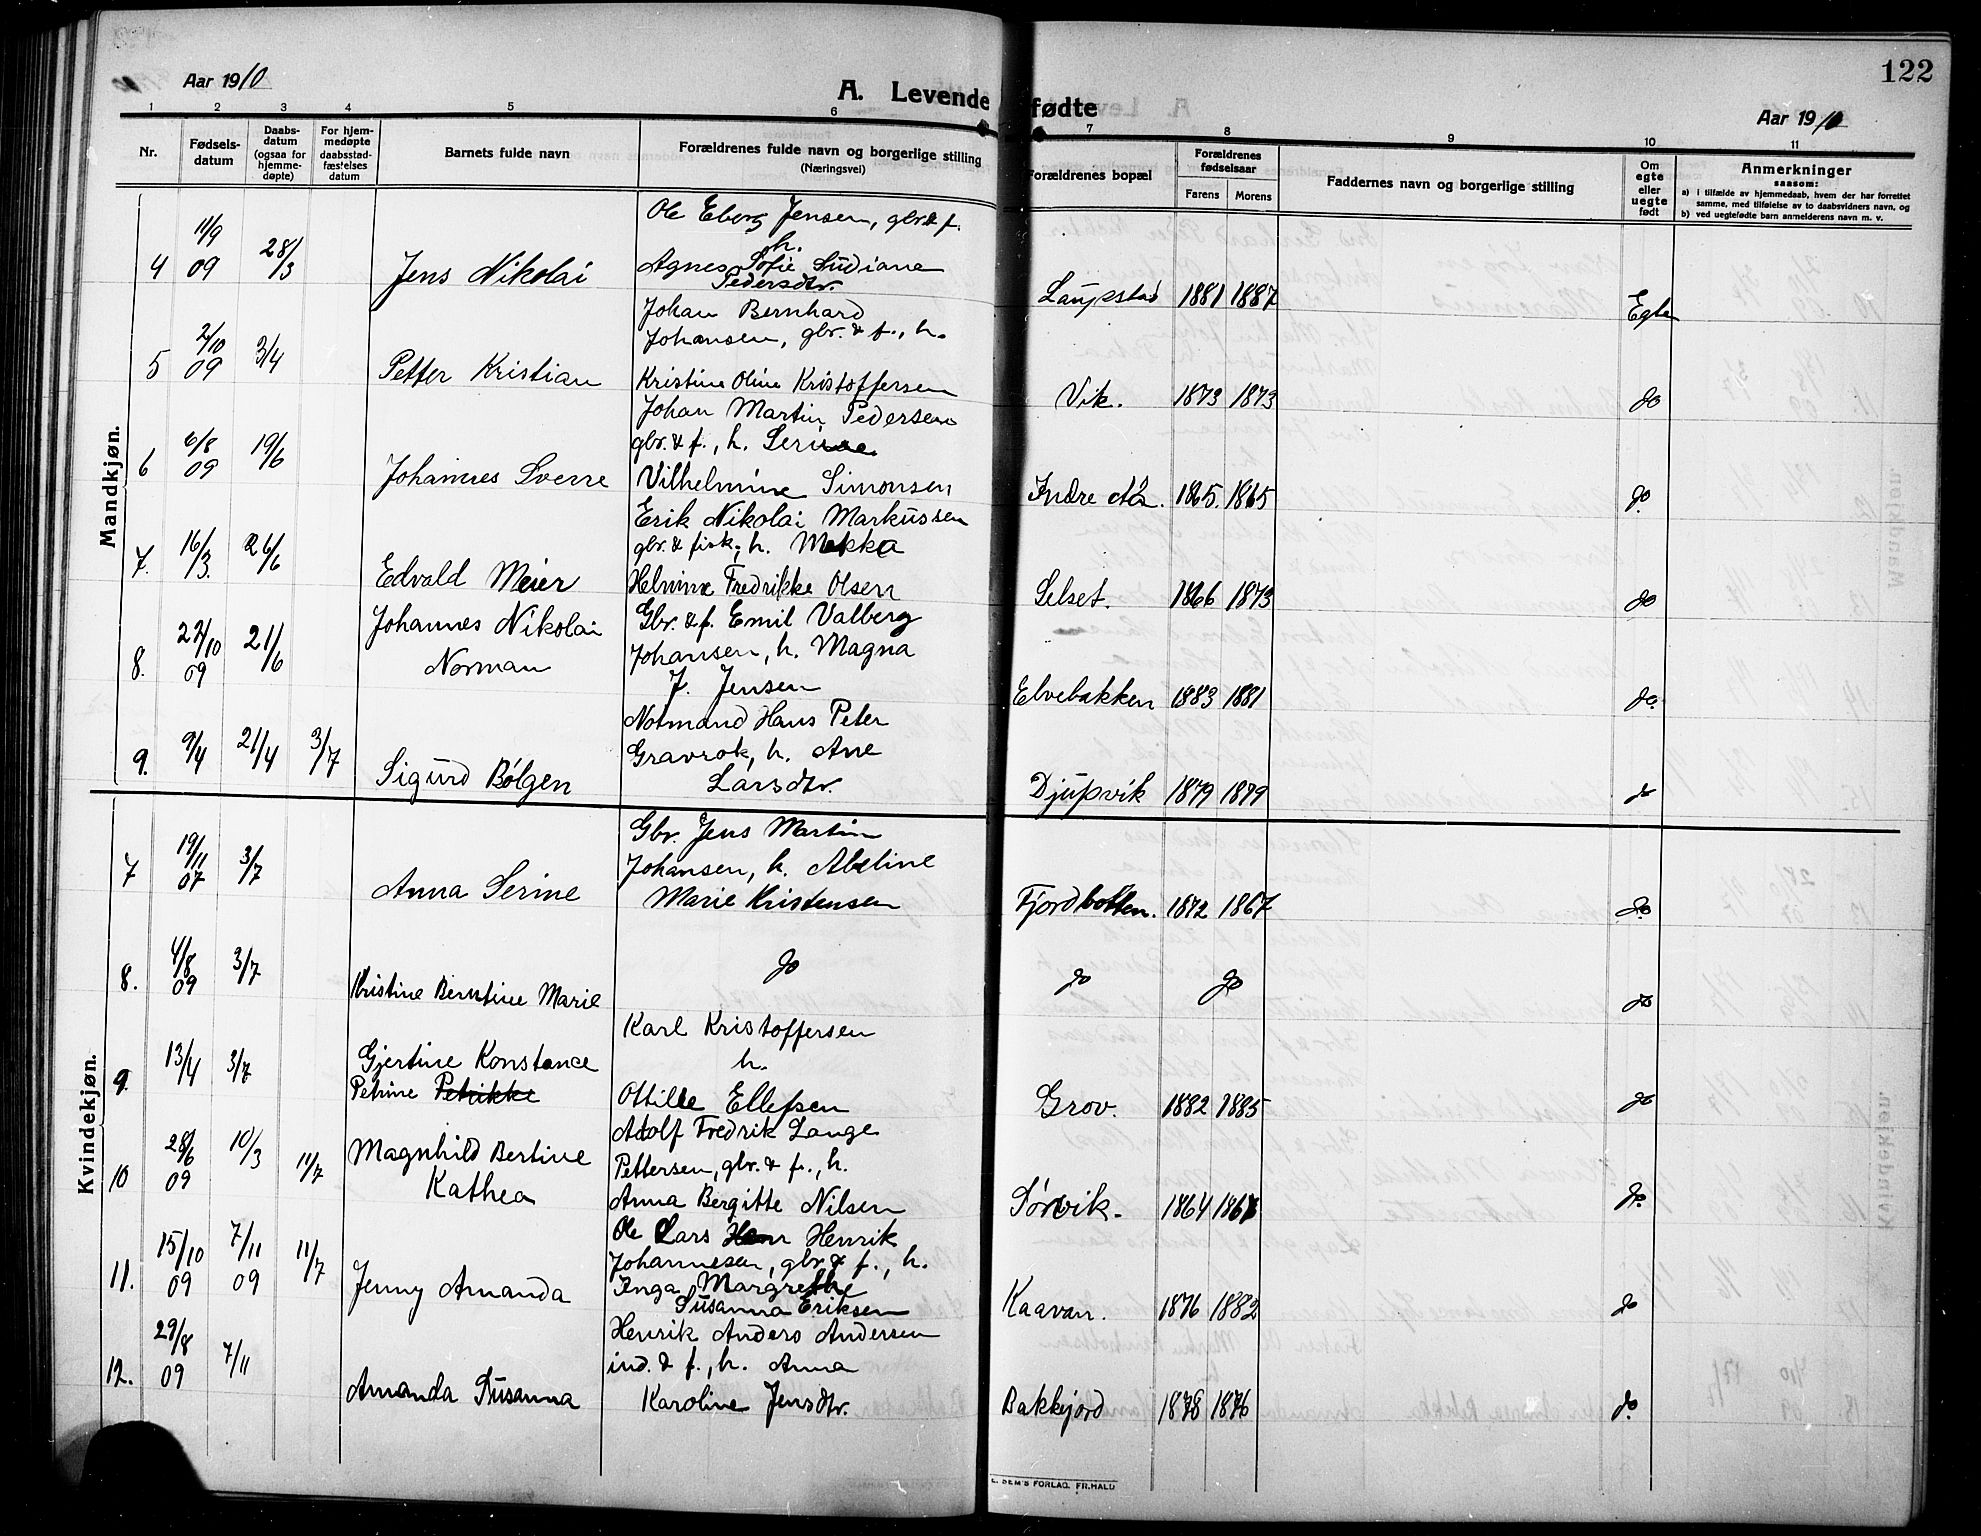 122
Aar 1910
A. Levende fødte
Aar 1910
1 2 3 4 5 6 7 8 9 10 11
Nr.
Fødsels-
datum
Daabs-
datum
(ogsaa for
hjemme-
døpte)
For hjem-
medøpte
daabsstad-
fæstelses
datum
Barnets fulde navn
Forældrenes fulde navn og borgerlige stilling
(Næringsvei)
Forældrenes bopæl
Forældrenes
fødselsaar
Farens Morens
Faddernes navn og borgerlige stilling
Om
egte
eller
uegte
født
Anmerkninger
saasom:
a) i tilfælde av hjemmedaab, hvem der har forrettet
samme, med tilføielse av to daabsvidners navn, og
b) ved uegtefødte barn anmelderens navn m. v.
Mandkjøn.
Ole Eberg Jensen, gbr. & f.
h.
4 11/9 09 28/3 Jens Nikolai Agnes Sofie Ludiane
Pedersdtr.
Laupstad 1881 1887 Egte
Johan Bernhard
Johansen, gbr. & f., h.
5 2/10 09 3/4 Petter Kristian Kristine Oline Kristoffersen
Vik. 1873 1873 do
Johan Martin Pedersen
gbr. & f., h. Serine
6 6/8 09 19/6 Johannes Sverre Vilhelmine Simonsen
Indre Aa. 1865. 1865 do.
Erik Nikolai Markussen
gbr. & fisk., h. Mekka
7. 16/3. 26/6 Edvald Meier Helmine Fredrikke Olsen
Selset. 1866 1873 do
Johannes Nikolai Gbr. & f. Emil Valberg
8. 22/10 09 21/6 Norman Johansen, h. Magna
J. Jensen
Elvebakken 1883 1881 do.
Notmand Hans Peter
9. 9/4 21/4 3/7 Sigurd Bølgen Gravrok, h. Ane
Larsdtr.
Djupvik 1879 1879 do
Kvindekjøn.
Gbr. Jens Martin
7 19/11 07 3/7 Anna Serine Johansen, h. Abeline
Marie Kristensen
Fjordbotten. 1872 1867 do.
8. 4/8 09 3/7 Kristine Berntine Marie do
do do do
Karl Kristoffersen
9. 13/4 3/7 Gjertine Konstance h.
Petrine Petrikke Ottille Ellefsen
Grov. 1882 1885 do
Adolf Fredrik Lange
10 28/6 09 10/3 11/7 Magnhild Bertine Pettersen, gbr. & f., h.
Kathea Anna Bergitte Nilsen
Sørvik. 1864 1867 do.
Ole Lars Henr Henrik
Johannesen, gbr. & f., h.
11. 15/10 09 7/11 09 11/7 Jenny Amanda Inga Margrethe
Susanna Eriksen
Kaavan. 1876 1882 do
Henrik Anders Andersen
ind. & f., h. Anna
12. 29/8 09 7/11 Amanda Susanna Karoline Jensdtr.
Bakkejord 1878 1876 do.
E. SEM'S FORLAG, FR.HALD